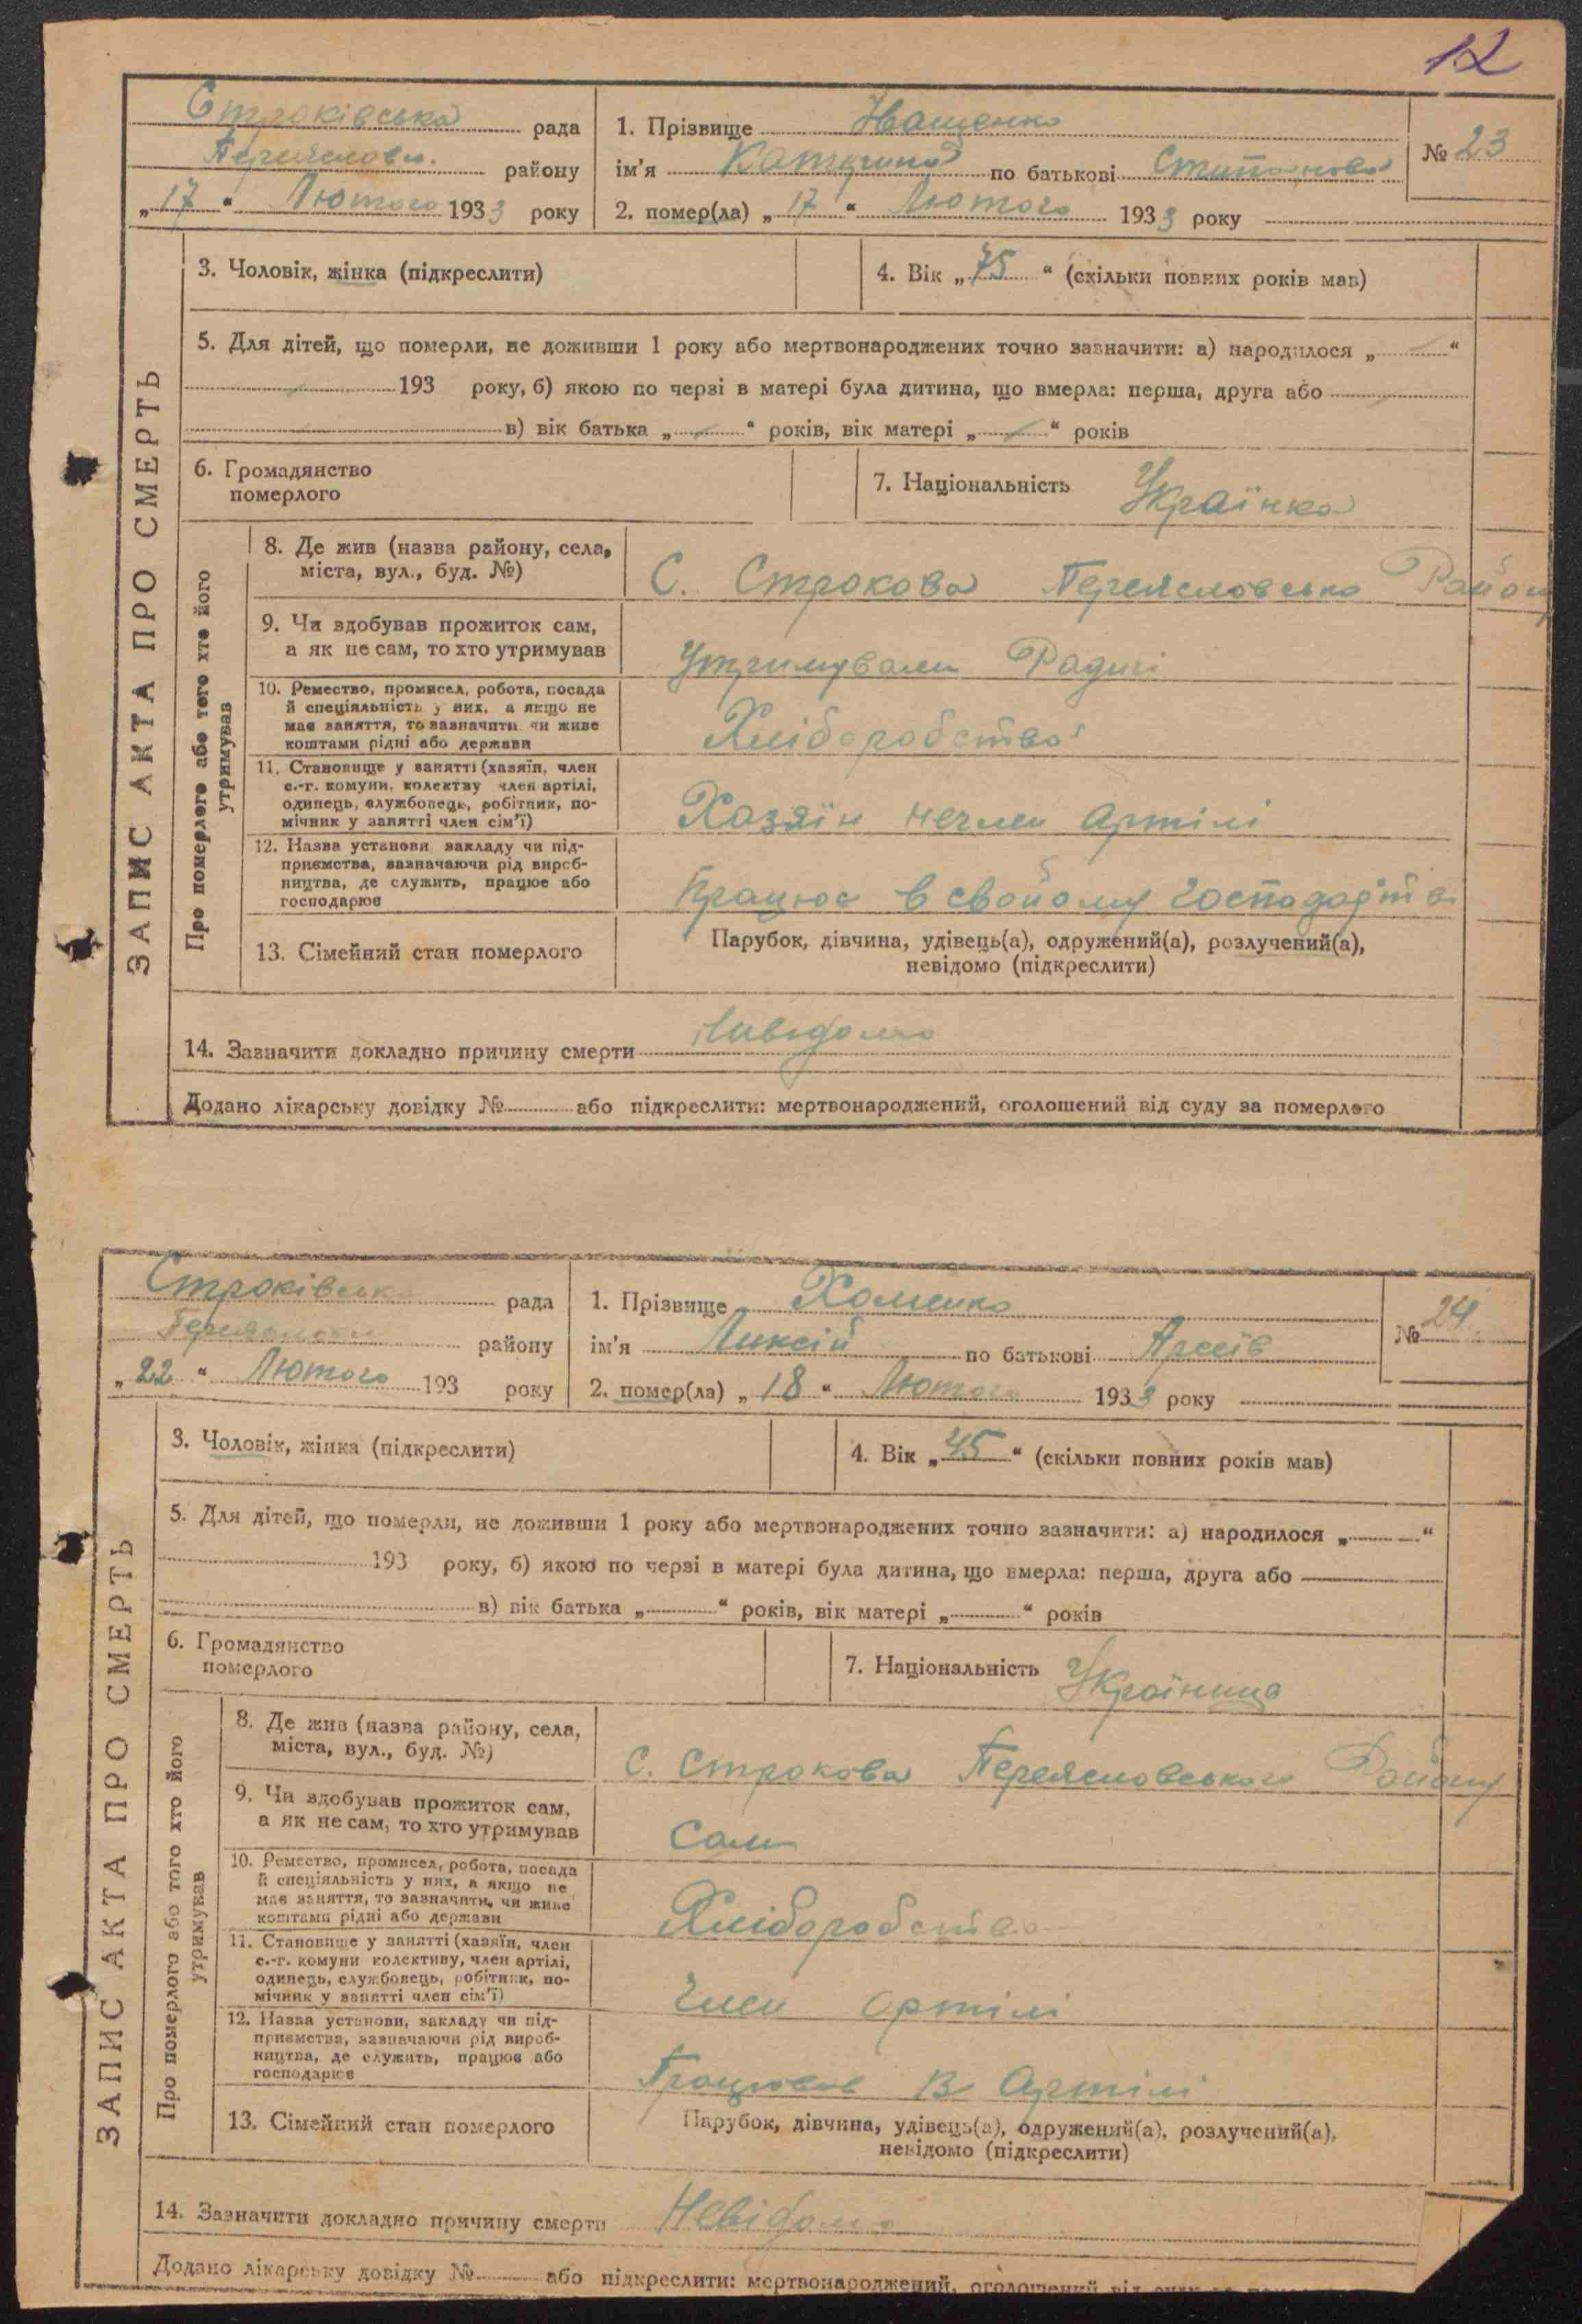 12
Строківська рада
Переяславськ. району
„17“ Лютого 1933 року
1. Прізвище Іващенко
ім'я Катерина по батькові Степанова
2. помер(ла) „17“ Лютого 1933 року
№ 23
ЗАПИС АКТА ПРО СМЕРТЬ
3. Чоловік, жінка (підкреслити)
4. Вік „75“ (скільки повних років мав)
5. Для дітей, що померли, не доживши 1 року або мертвонароджених точно зазначити: а) народилося „ “
193 року, б) якою по черзі в матері була дитина, що вмерла: перша, друга або
в) вік батька „ “ років, вік матері „ “ років
6. Громадянство
померлого
7. Національність Українка
Про померлого або того хто його
утримував
8. Де жив (назва району, села,
міста, вул., буд. №)
С. Строкова Переяславсько Району
9. Чи здобував прожиток сам,
а як не сам, то хто утримував
Утримували Радичі
10. Ремество, промисел, робота, посада
й спеціяльність у них, а якщо не
має заняття, то зазначити чи живе
коштами рідні або держави
Хліборобство
11. Становище у занятті (хазяїн, член
с.-г. комуни, колективу член артілі,
одинець, службовець, робітник, по-
мічник у занятті член сім'ї)
Хазяїн нечлен Артілі
12. Назва установи закладу чи під-
приємства, зазначаючи рід вироб-
ництва, де служить, працює або
господарює
Працює в свойому господарств
13. Сімейний стан померлого
Парубок, дівчина, удівець(а), одружений(а), розлучений(а),
невідомо (підкреслити)
14. Зазначити докладно причину смерти Нивідомо
Додано лікарську довідку № або підкреслити: мертвонароджений, оголошений від суду за померлого
Строківська рада
району
„22“ Лютого 193 року
1. Прізвище Хоменко
ім'я Ликсій по батькові
2. помер(ла) „18“ Лютого 1933 року
№ 24
ЗАПИС АКТА ПРО СМЕРТЬ
3. Чоловік, жінка (підкреслити)
4. Вік „45“ (скільки повних років мав)
5. Для дітей, що померли, не доживши 1 року або мертвонароджених точно зазначити: а) народилося „ “
193 року, б) якою по черзі в матері була дитина, що вмерла: перша, друга або
в) вік батька „ “ років, вік матері „ “ років
6. Громадянство
померлого
7. Національність Українець
Про померлого або того хто його
утримував
8. Де жив (назва району, села,
міста, вул., буд. №)
С. Строкова Переясловського Району
9. Чи здобував прожиток сам,
а як не сам, то хто утримував
Сам
10. Ремество, промисел, робота, посада
й спеціяльність у них, а якщо не
має заняття, то зазначити, чи живе
коштами рідні або держави
Хліборобство
11. Становище у занятті (хазяїн, член
с.-г. комуни колективу, член артілі,
одинець, службовець, робітник, по-
мічник у занятті член сім'ї)
Член Артілі
12. Назва установи, закладу чи під-
приємства, зазначаючи рід вироб-
ництва, де служить, працює або
господарює
Працював В Артілі
13. Сімейний стан померлого
Парубок, дівчина, удівець(а), одружений(а), розлучений(а),
невідомо (підкреслити)
14. Зазначити докладно причину смерти Невідомо
Додано лікарську довідку № або підкреслити: мертвонароджений, оголошений від суду за